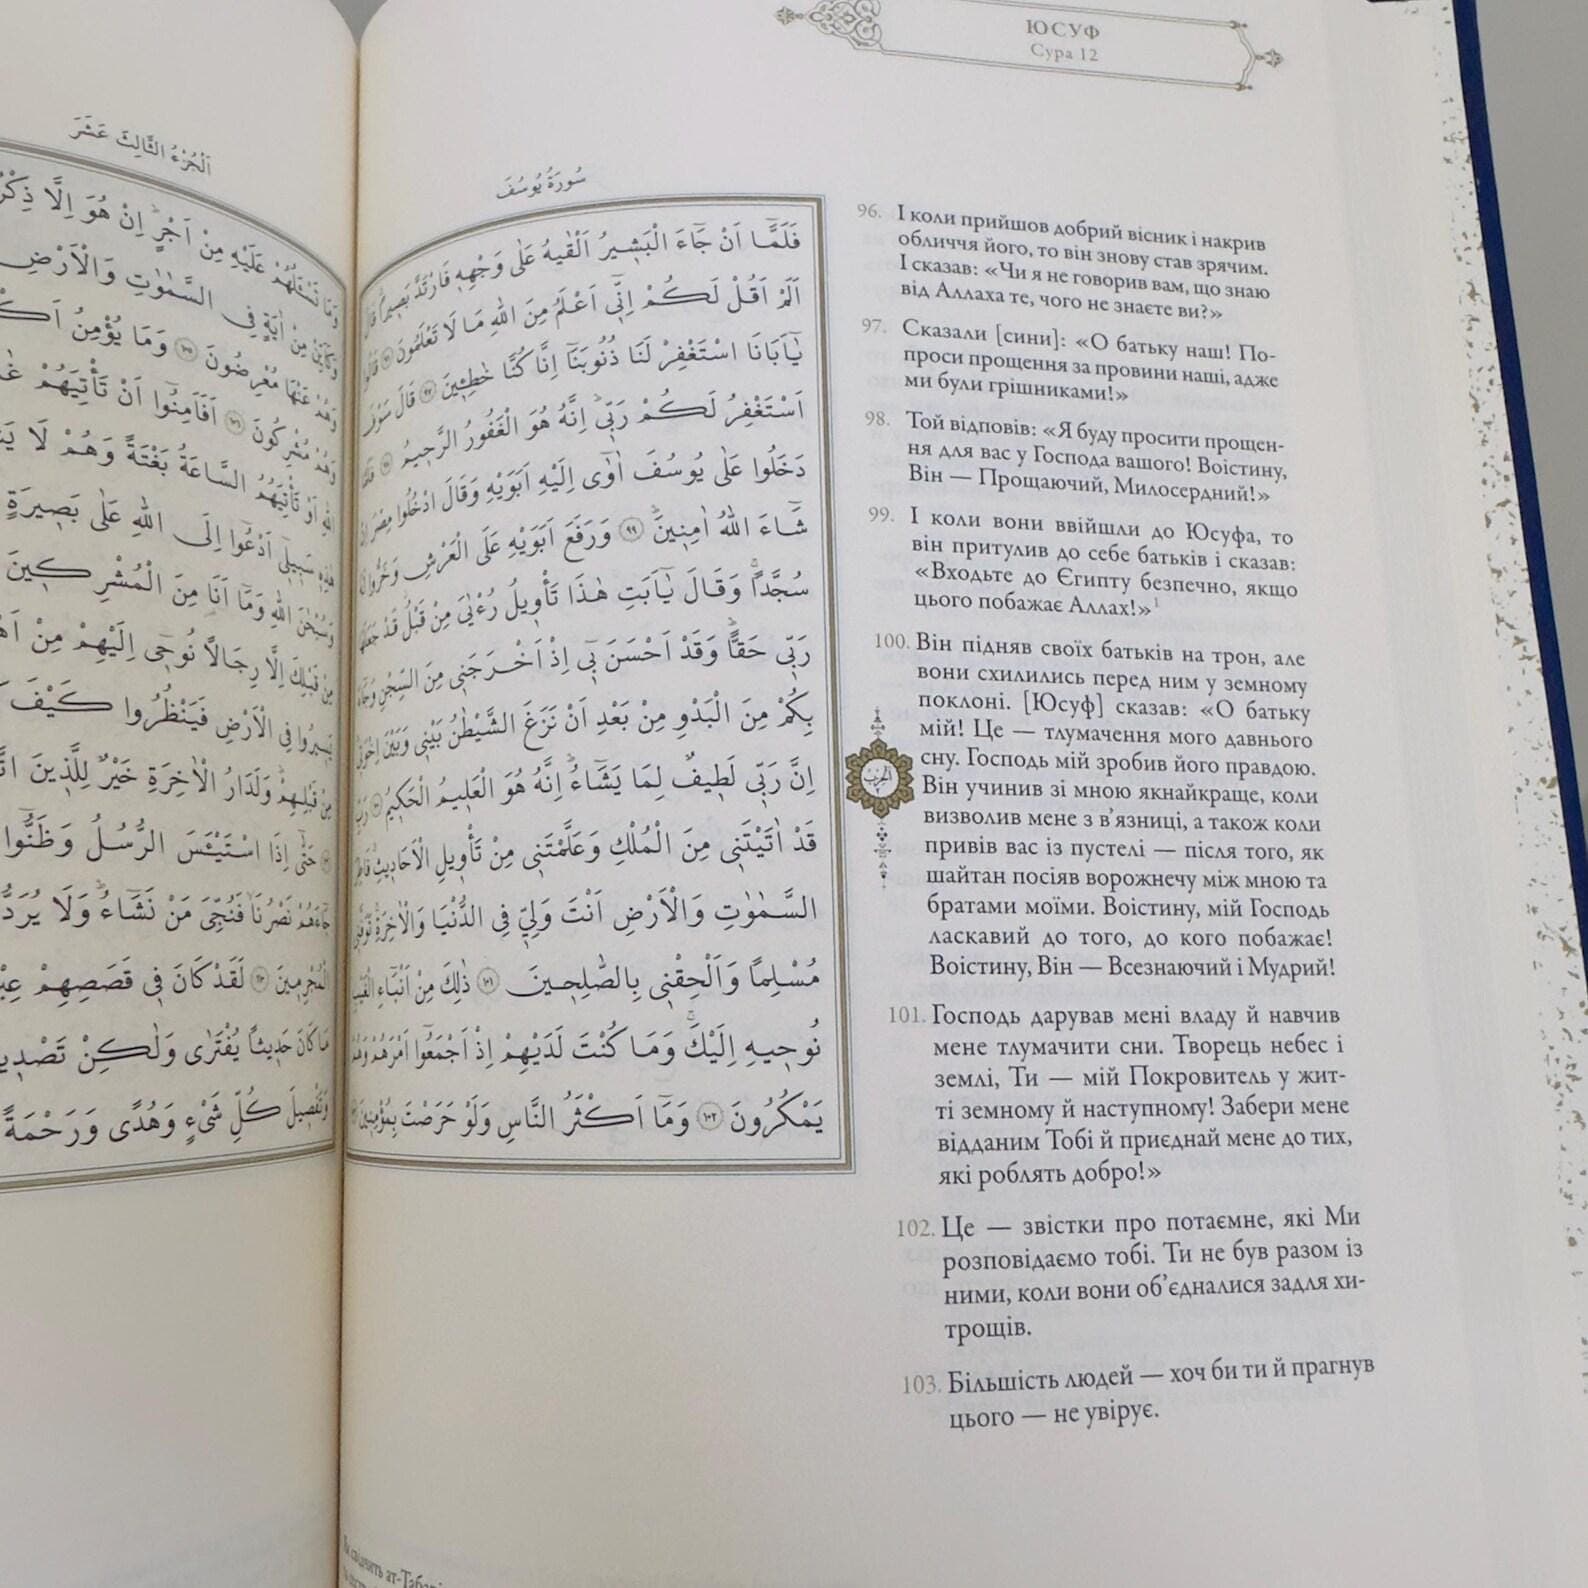 ЮСУФ
Сура 12
اَلْجُزْءُ الثَّالِثَ عَشَرَ
وَمَا تَسْـَٔلُهُمْ عَلَيْهِ مِنْ اَجْرٍ اِنْ هُوَ اِلَّا ذِكْرٌ
وَكَاَيِّنْ مِنْ اٰيَةٍ فِي السَّمٰوَاتِ وَالْاَرْضِ
وَهُمْ عَنْهَا مُعْرِضُونَ ١٠٥ وَمَا يُؤْمِنُ
وَهُمْ مُشْرِكُونَ ١٠٦ اَفَاَمِنُوا اَنْ تَأْتِيَهُمْ
اللّٰهِ اَوْ تَأْتِيَهُمُ السَّاعَةُ بَغْتَةً وَهُمْ لَا
هٰذِهٖ سَبٖيلٖٓي اَدْعُوا اِلَى اللّٰهِ عَلٰى بَصٖيرَةٍ
وَسُبْحَانَ اللّٰهِ وَمَا اَنَا مِنَ الْمُشْرِكٖينَ
مِنْ قَبْلِكَ اِلَّا رِجَالًا نُوحٖٓي اِلَيْهِمْ مِنْ
يَسٖيرُوا فِي الْاَرْضِ فَيَنْظُرُوا كَيْفَ
مِنْ قَبْلِهِمْ وَلَدَارُ الْاٰخِرَةِ خَيْرٌ لِلَّذٖينَ
حَتّٰٓى اِذَا اسْتَيْـَٔسَ الرُّسُلُ وَظَنُّوا
جَٓاءَهُمْ نَصْرُنَا فَنُجِّيَ مَنْ نَشَٓاءُ وَلَا يُرَدُّ
الْمُجْرِمٖينَ ١١٠ لَقَدْ كَانَ فٖي قَصَصِهِمْ
مَا كَانَ حَدٖيثًا يُفْتَرٰى وَلٰكِنْ
وَتَفْصٖيلَ كُلِّ شَيْءٍ وَهُدًى وَرَحْمَةً
سُورَةُ يُوسُفَ
فَلَمَّٓا اَنْ جَٓاءَ الْبَشٖيرُ اَلْقٰيهُ عَلٰى وَجْهِهٖ فَارْتَدَّ بَصٖيرًا قَالَ
اَلَمْ اَقُلْ لَكُمْ اِنّٖٓي اَعْلَمُ مِنَ اللّٰهِ مَا لَا تَعْلَمُونَ ٩٦ قَالُوا
يَٓا اَبَانَا اسْتَغْفِرْ لَنَا ذُنُوبَنَٓا اِنَّا كُنَّا خَاطِـٖٔينَ ٩٧ قَالَ سَوْفَ
اَسْتَغْفِرُ لَكُمْ رَبّٖي اِنَّهُ هُوَ الْغَفُورُ الرَّحٖيمُ ٩٨ فَلَمَّا
دَخَلُوا عَلٰى يُوسُفَ اٰوٰٓى اِلَيْهِ اَبَوَيْهِ وَقَالَ ادْخُلُوا مِصْرَ اِنْ
شَٓاءَ اللّٰهُ اٰمِنٖينَ ٩٩ وَرَفَعَ اَبَوَيْهِ عَلَى الْعَرْشِ وَخَرُّوا لَهُ
سُجَّدًا وَقَالَ يَٓا اَبَتِ هٰذَا تَأْوٖيلُ رُءْيَايَ مِنْ قَبْلُ قَدْ جَعَلَهَا
رَبّٖي حَقًّا وَقَدْ اَحْسَنَ بٖٓي اِذْ اَخْرَجَنٖي مِنَ السِّجْنِ وَجَٓاءَ
بِكُمْ مِنَ الْبَدْوِ مِنْ بَعْدِ اَنْ نَزَغَ الشَّيْطَانُ بَيْنٖي وَبَيْنَ اِخْوَتٖي
اِنَّ رَبّٖي لَطٖيفٌ لِمَا يَشَٓاءُ اِنَّهُ هُوَ الْعَلٖيمُ الْحَكٖيمُ ١٠٠ رَبِّ
قَدْ اٰتَيْتَنٖي مِنَ الْمُلْكِ وَعَلَّمْتَنٖي مِنْ تَأْوٖيلِ الْاَحَادٖيثِ فَاطِرَ
السَّمٰوَاتِ وَالْاَرْضِ اَنْتَ وَلِيّٖ فِي الدُّنْيَا وَالْاٰخِرَةِ تَوَفَّنٖي
مُسْلِمًا وَاَلْحِقْنٖي بِالصَّالِحٖينَ ١٠١ ذٰلِكَ مِنْ اَنْبَٓاءِ الْغَيْبِ
نُوحٖيهِ اِلَيْكَ وَمَا كُنْتَ لَدَيْهِمْ اِذْ اَجْمَعُٓوا اَمْرَهُمْ وَهُمْ
يَمْكُرُونَ ١٠٢ وَمَٓا اَكْثَرُ النَّاسِ وَلَوْ حَرَصْتَ بِمُؤْمِنٖينَ
96. І коли прийшов добрий вісник і накрив
обличчя його, то він знову став зрячим.
І сказав: «Чи я не говорив вам, що знаю
від Аллаха те, чого не знаєте ви?»
97. Сказали [сини]: «О батьку наш! По-
проси прощення за провини наші, адже
ми були грішниками!»
98. Той відповів: «Я буду просити прощен-
ня для вас у Господа вашого! Воістину,
Він — Прощаючий, Милосердний!»
99. І коли вони ввійшли до Юсуфа, то
він притулив до себе батьків і сказав:
«Входьте до Єгипту безпечно, якщо
цього побажає Аллах!»¹
100. Він підняв своїх батьків на трон, але
вони схилились перед ним у земному
поклоні. [Юсуф] сказав: «О батьку
мій! Це — тлумачення мого давнього
сну. Господь мій зробив його правдою.
Він учинив зі мною якнайкраще, коли
визволив мене з в’язниці, а також коли
привів вас із пустелі — після того, як
шайтан посіяв ворожнечу між мною та
братами моїми. Воістину, мій Господь
ласкавий до того, до кого побажає!
Воістину, Він — Всезнаючий і Мудрий!
101. Господь дарував мені владу й навчив
мене тлумачити сни. Творець небес і
землі, Ти — мій Покровитель у жит-
ті земному й наступному! Забери мене
відданим Тобі й приєднай мене до тих,
які роблять добро!»
102. Це — звістки про потаємне, які Ми
розповідаємо тобі. Ти не був разом із
ними, коли вони об’єдналися задля хи-
трощів.
103. Більшість людей — хоч би ти й прагнув
цього — не увірує.
الحزب
свідчить ат-Табарі